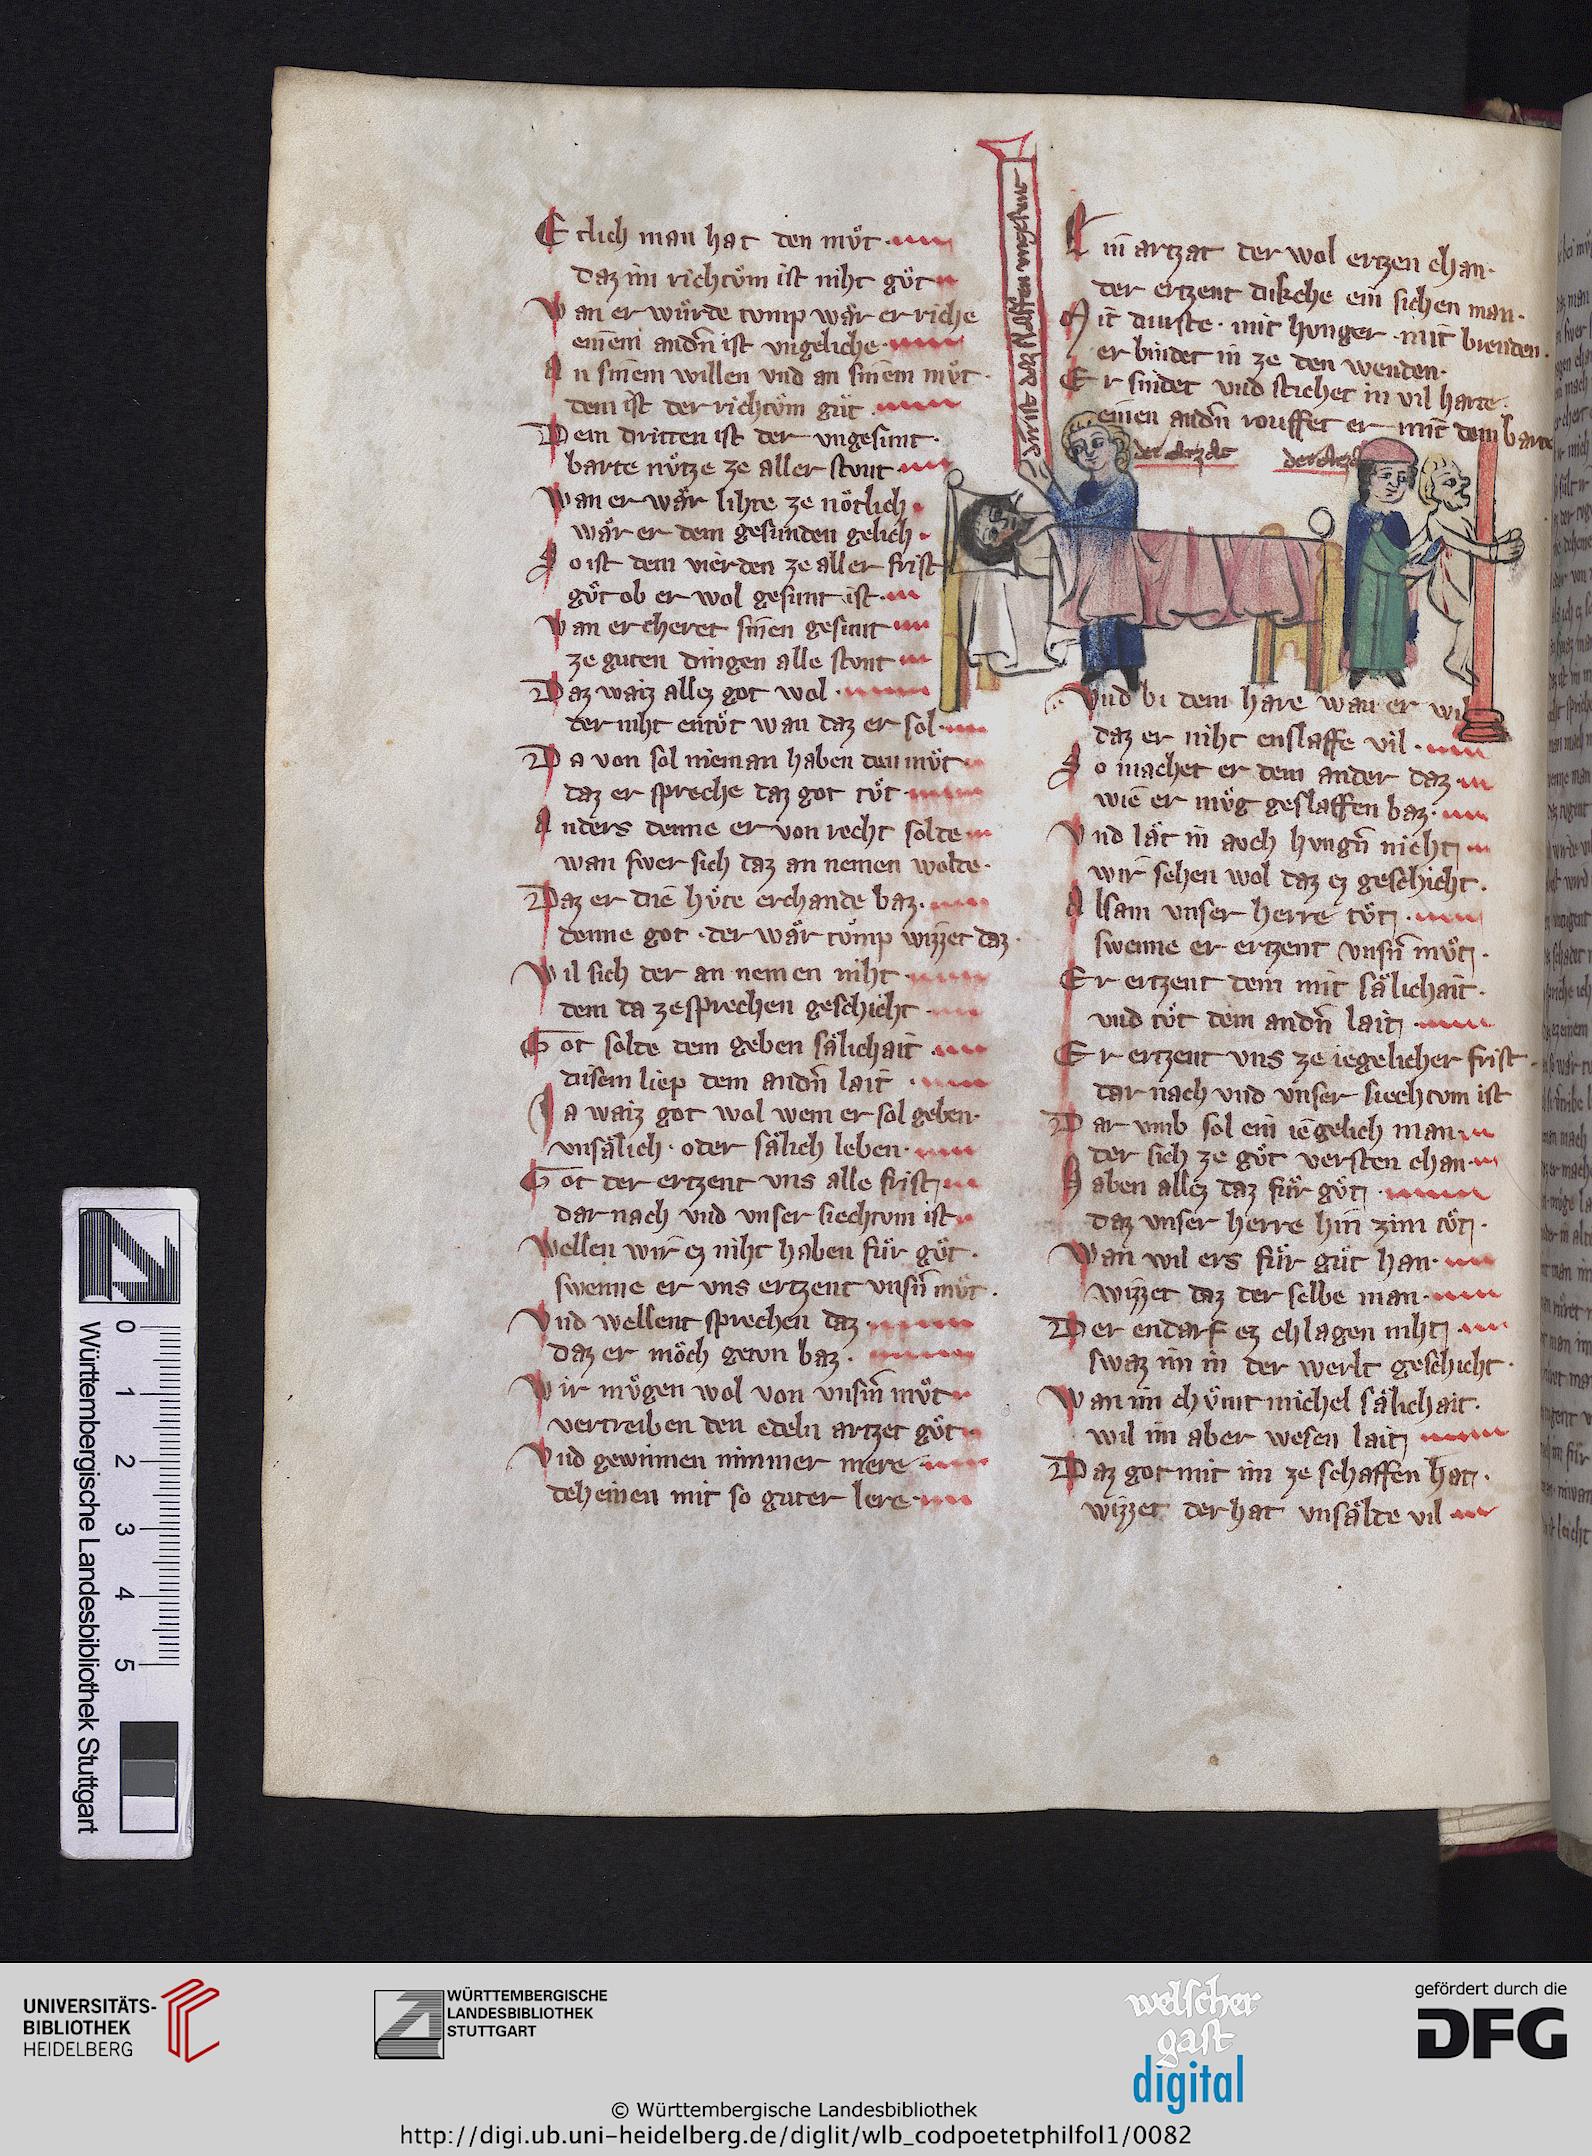 Etlich man hat den mvͦt
daz im richtvͦm ist niht gvͦt
Wan er wuͤrde tvmp waͤr er riche
einem andn̄ ist vngeliche
An sinem willen vnd an sinem mvͦt
dem ist der richtvͦm guͦt
Dem dritten ist der vngesunt
harte nvͤtze ze aller stvnt
Wan er waͤr lihte ze noͤtlich
waͤr er dem gesunden gelich
So ist dem vierden ze aller frist
gvͦt ob er wol gesunt ist
Wan er cheret sinen gesunt
ze guten dingen alle stvnt
Daz waiz allez got wol
der niht entvͦt wan daz er sol
Da von sol nieman haben den mvͦt
daz er spreche daz got tvͦt
Anders denne er von recht solte
wan swer sich daz an nemen wolte
Daz er die hvͤte erchande baz
denne got der waͤr tvmp wizzet daz
Wil sich der an nemen niht
dem da ze sprechen geschicht
Got solte dem geben saͤlichait
disem liep dem andn̄ lait
Ja waiz got wol wem er sol geben
vnsaͤlich oder saͤlich leben
Got der ertzent vns alle frist
dar nach vnd vnser siechtvm ist
Wellen wir ez niht haben fuͤr gvͦt
swenne er vns ertzent vnsn̄ mvͦt
Vnd wellent sprechen daz
daz er moͤch getvn baz
Wir mvͤgen wol von vnsn̄ mvͦt
vertreiben den edeln artzet gvͦt
Vnd gewinnen nimmer mere
deheinen mit so guter lere
Ein artzat der wol ertzen chan
der ertzent dikche ein siechen man
Mit durste mit hvnger mit brenden
er bindet in ze den wenden
Er snidet vnd stichet in vil harte
einen andn̄ rouffet er mit dem barte
der arzat
der arzat
Vnd bi dem hare wan er wil
daz er niht enslaffe vil
So machet er dem ander daz
wie er mvͤg geslaffen baz
Vnd laͤt in auch hvngn̄ nicht
wir sehen wol daz ez geschicht
Alsam vnser herre tvͦt
swenne er ertzent vnsn̄ mvͦt
Er ertzent dem mit saͤlichait
vnd tvͦt dem andn̄ lait
Er ertzent vns ze iegelicher frist
dar nach vnd vnser siechtvm ist
Dar vmb sol ein iegelich man
der sich ze gvͦt versten chan
Haben allez daz fuͤr gvͦt
daz vnser herre hin zim tvͦt
Wan wil ers fuͤr guͦt han
wizzet daz der selbe man
Der endarf ez chlagen niht
swaz im in der werlt geschicht
Wan im chvͤmt michel saͤlichait
wil im aber wesen lait
Daz got mit im ze schaffen hat
wizzet der hat vnsaͤlde vil
0 1 2 3 4 5
Württembergische Landesbibliothek Stuttgart
UNIVERSITÄTS-
BIBLIOTHEK
HEIDELBERG
WÜRTTEMBERGISCHE
LANDESBIBLIOTHEK
STUTTGART
welscher
gast
digital
gefördert durch die
DFG
© Württembergische Landesbibliothek
http://digi.ub.uni-heidelberg.de/diglit/wlb_codpoetetphilfol1/0082